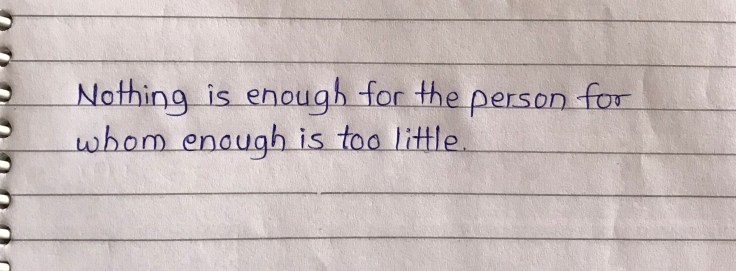 Nothing is enough for the person for
whom enough is too little.